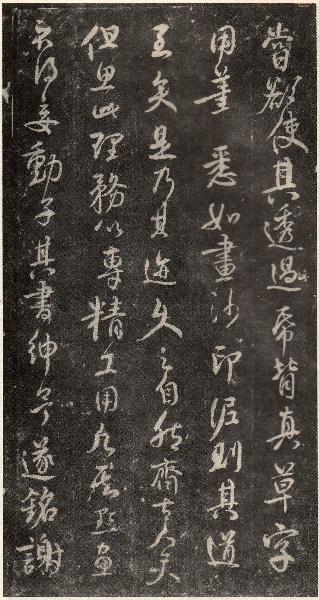 嘗欲使其透過帋背真草字
用筆悉如畫沙印泥則其道
至矣是乃其迹久之自然齊古人矣
但思此理務以專精工用點畫
不得妄動子其書紳遂銘謝